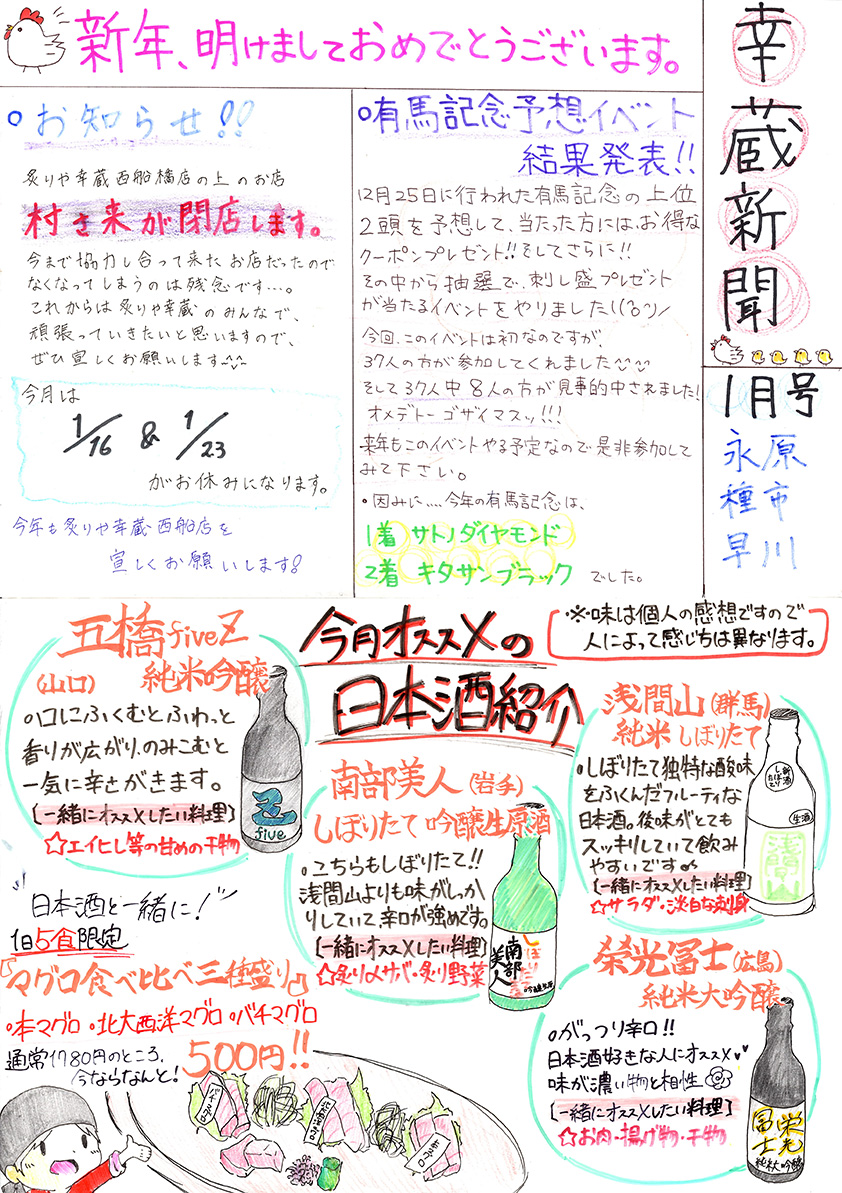 新年、明けましておめでとうございます。
幸蔵新聞
1月号
永原
種市
早川
お知らせ!!
炙りや幸蔵西船橋店の上のお店
村さ来が閉店します。
今まで協力し合って来たお店だったので
なくなってしまうのは残念です…。
これからは炙りや幸蔵のみんなで、
頑張っていきたいと思いますので、
ぜひ宜しくお願いします^^
今月は
1/16 & 1/23
がお休みになります。
今年も炙りや幸蔵西船店を
宜しくお願いします!
有馬記念予想イベント
結果発表!!
12月25日に行われた有馬記念の上位
2頭を予想して、当たった方には、お得な
クーポンプレゼント!!そしてさらに!!
その中から抽選で、刺し盛プレゼント
が当たるイベントをやりました
今回、このイベントは初なのですが、
37人の方が参加してくれました^^
そして37人中8人の方が見事的中されました!
オメデトーゴザイマスッ!!!
来年もこのイベントやる予定なので是非参加して
みて下さい。
・因みに….今年の有馬記念は、
1着 サトノダイヤモンド
2着 キタサンブラック でした。
今月オススメの
日本酒紹介
・※味は個人の感想ですので
人によって感じちは異なります。
五橋fiveZ
(山口) 純米吟醸
口にふくむとふわっと
香りが広がり、のみこむと
一気に辛さがきます。
[一緒にオススメしたい料理]
☆エイヒレ等の甘めの干物
five
南部美人(岩手)
しぼりたて 吟醸生原酒
こちらもしぼりたて!!
浅間山よりも味がしっか
りしていて、辛口が強めです。
[一緒にオススメしたい料理]
☆炙り〆サバ・炙り野菜
南部美人
浅間山(群馬)
純米 しぼりたて
しぼりたて独特な酸味
をふくんだフルーティな
日本酒。後味がとても
スッキリしていて飲み
やすいです♪
[一緒にオススメしたい料理]
☆サラダ・淡白な刺身
新酒
しぼりたて
生酒
浅間山
榮光冨士(広島)
純米大吟醸
がっつり辛口!!
日本酒好きな人にオススメ♥♥
味が濃い物と相性
[一緒にオススメしたい料理]
☆お肉・揚げ物・干物
栄光
冨士
純米大吟醸
日本酒と一緒に!
1日5食限定
『マグロ食べ比べ三種盛り』
・本マグロ ・北大西洋マグロ ・バチマグロ
通常1780円のところ、
今ならなんと! 500円!!
バチマグロ
本マグロ